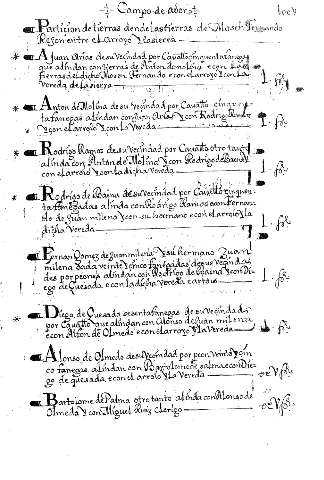 Campo de abersº
Particion de tierras dende las tierras de Mosen Fernando
Reson entre el arroyo y la sierra
A Juan Arias de su vezindad por Cavallº cinquenta fanegas
que alindan con tierras de Anton de Molina e con las
tierras del dicho Mosen Fernando e con el arroyo y con la
vereda de la sierra
Anton de Molina de su vezindad por Cavallº cinquenta
fanegas alindan con Juan Arias y con Rodrigo Ramos
y con el arroyo y con la Vereda
Rodrigo Ramos su vezindad por Cavallº otro tanto
alinda con Anton de Molina y con Rodrigo de Baena
e con el arroyo y con la dicha vereda
Rodrigo de Baena de su vezindad por Cavallº cinquenta
fanegadas alinda con Rodrigo Ramos e con Fernando
de Juan milena y con su hermano e con el arroyo y la
dicha Vereda
Fernan Gomez de Juan milena y su hermano Juan
milena cada veinte y cinco fanegadas de sus vezindades
por peones alindan con Rodrigo de baena y con Diego
de Quesada e con la dicha vereda
Diego de Quesada cinquenta fanegas de su vezindad
por Cavallº que alindan con Alonso de Juan milena
e con Alonso de Olmedo e con el arroyo y la Vereda
Alonso de Olmedo de su vezindad por peon veinte y cinco
fanegas alindan con Bartolome de palma e con Diego
de quesada e con el arroio y la vereda
Bartolome de Palma otro tanto alinda con Alonso de
Olmedo y con Miguel Ruiz clerigo